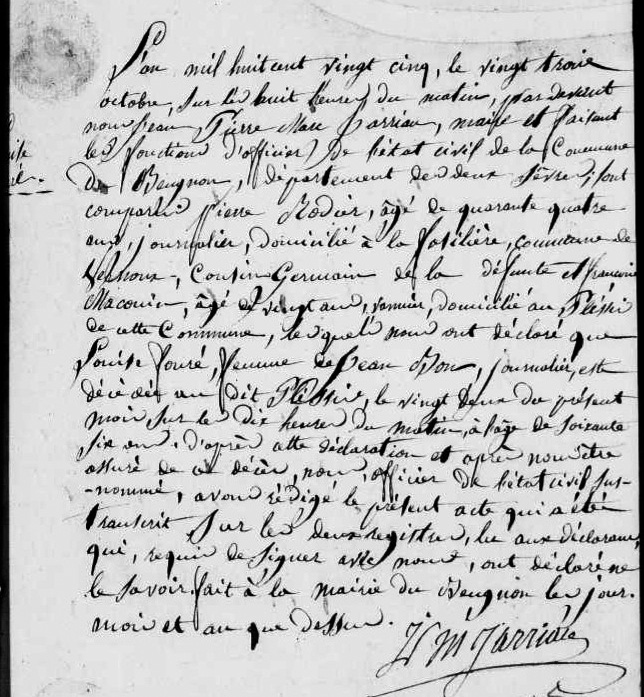 L'an mil huit cent vingt cinq, le vingt trois
octobre, sur les huit heures du matin, par devant
nous Jean Pierre Marc Jarriau, maire et faisant
les fonctions d'officier de l'état civil de la Commune
du Beugnon, département des deux Sèvres, sont
comparus Pierre Rodier, âgé de quarante quatre
ans, journalier, domicilié à la Fosilière, commune de
Vernoux, Cousin Germain de la défunte et françois
Macouin, âgé de vingt ans, domicilié au Plessis
de cette Commune, lesquels nous ont déclaré que
Louise Fouré, femme de Jean Bon, journalier, est
décédée au dit Plessis, le vingt deux du présent
mois sur les dix heures du matin, à l'âge de soixante
six ans. d'après cette déclaration et après nous être
assuré de ce décès, nous, officier de l'état civil sus-
-nommé, avons rédigé le présent acte qui a été
transcrit sur les deux registres, lu aux déclarans,
qui, requis de signer avec nous, ont déclaré ne
le savoir. fait à la mairie du Beugnon les jour.
mois et an que dessus.
Jarriau